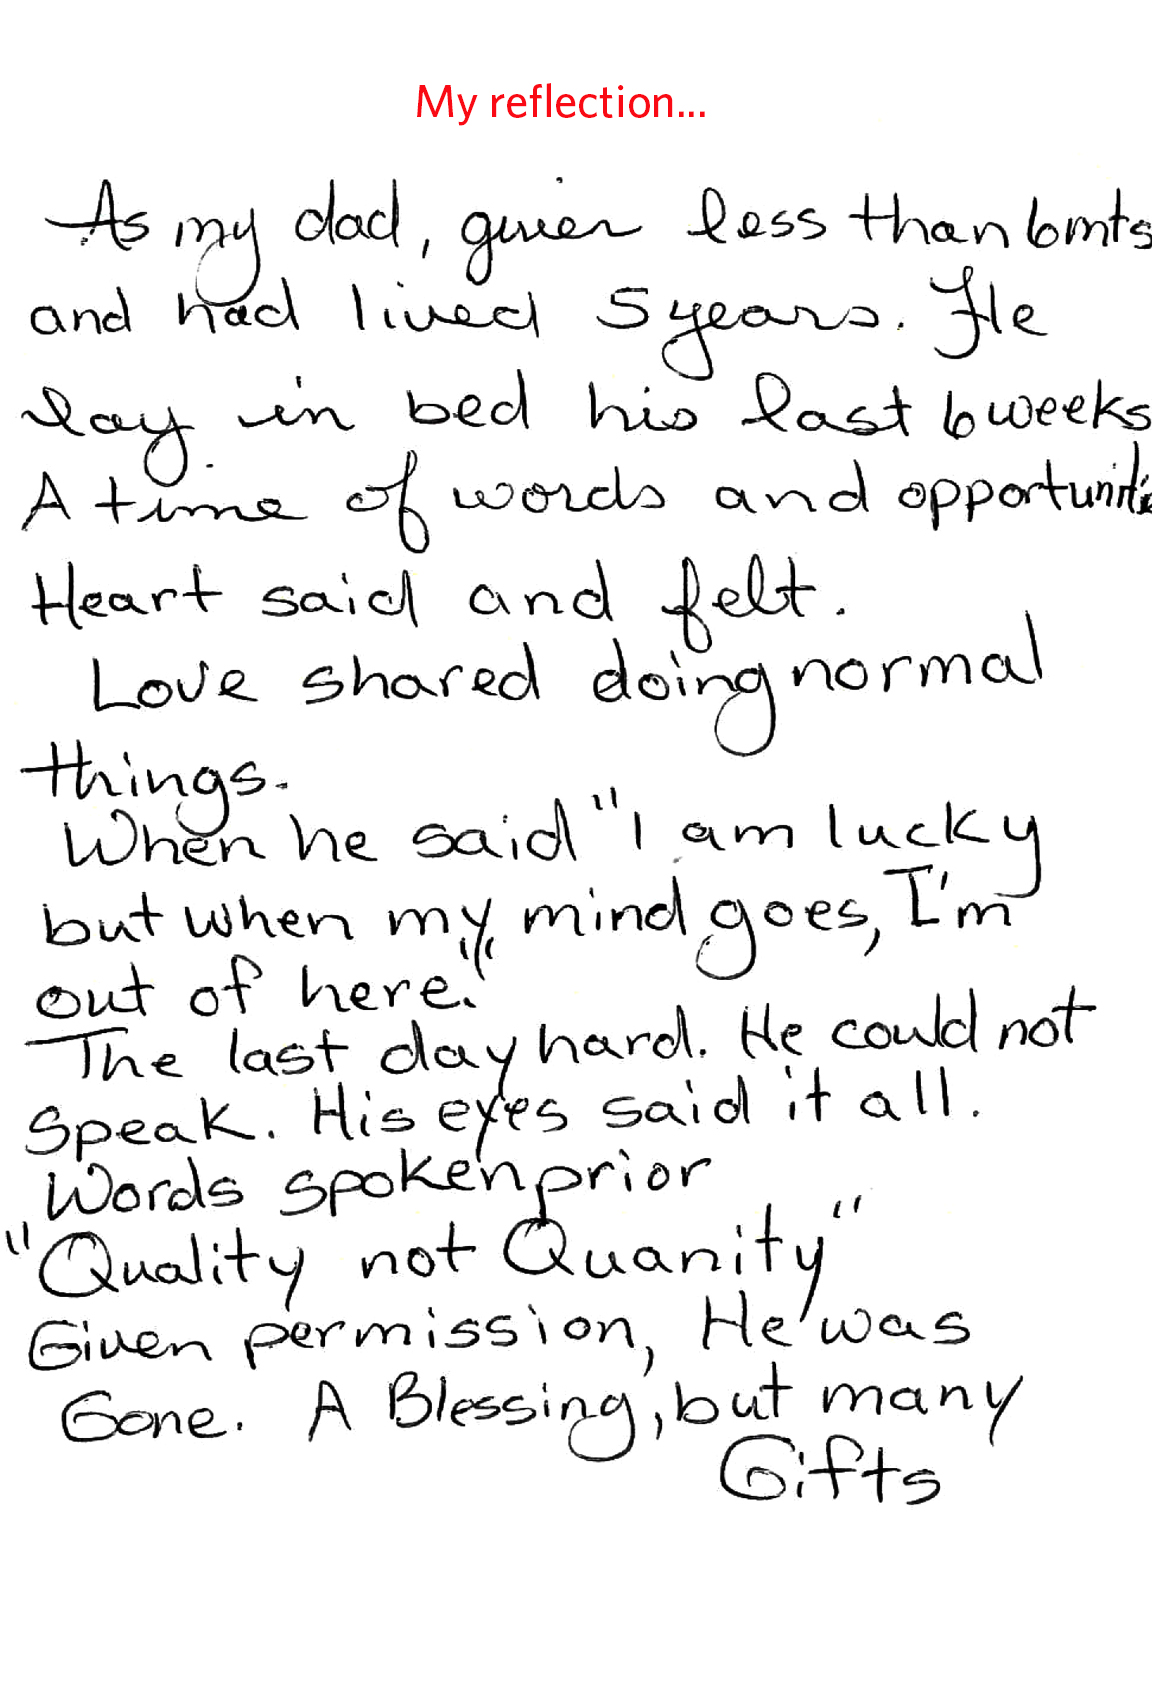 My reflection...
As my dad, given less than 6mts
and had lived 5 years. He
lay in bed his last 6 weeks
A time of words and opportunitie
Heart said and felt.
Love shared doing normal
things.
When he said "I am lucky
but when my mind goes, I'm
out of here."
The last day hard. He could not
speak. His eyes said it all.
Words spoken prior
"Quality not Quanity"
Given permission, He was
Gone. A Blessing, but many
Gifts